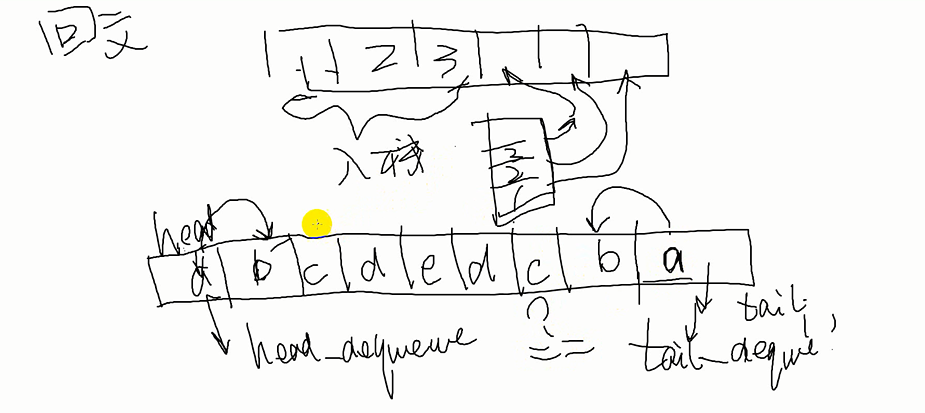 回文
1 2 3
入栈
3
2
1
head
a b c d e d c b a
tail
head_dequeue
? ==
tail_deque